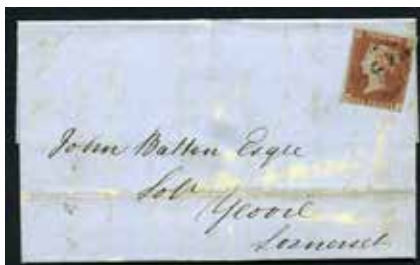 John Batten Esqre
Solr
Yeovil
Somerset